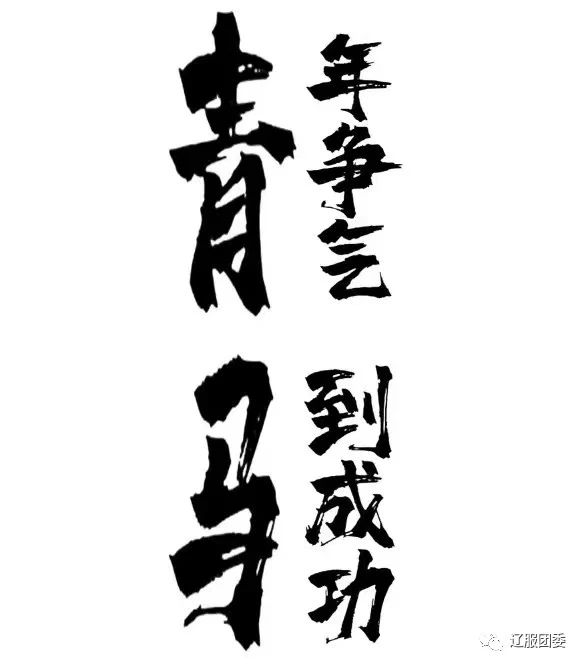 青
年争气
马
到成功
辽服团委